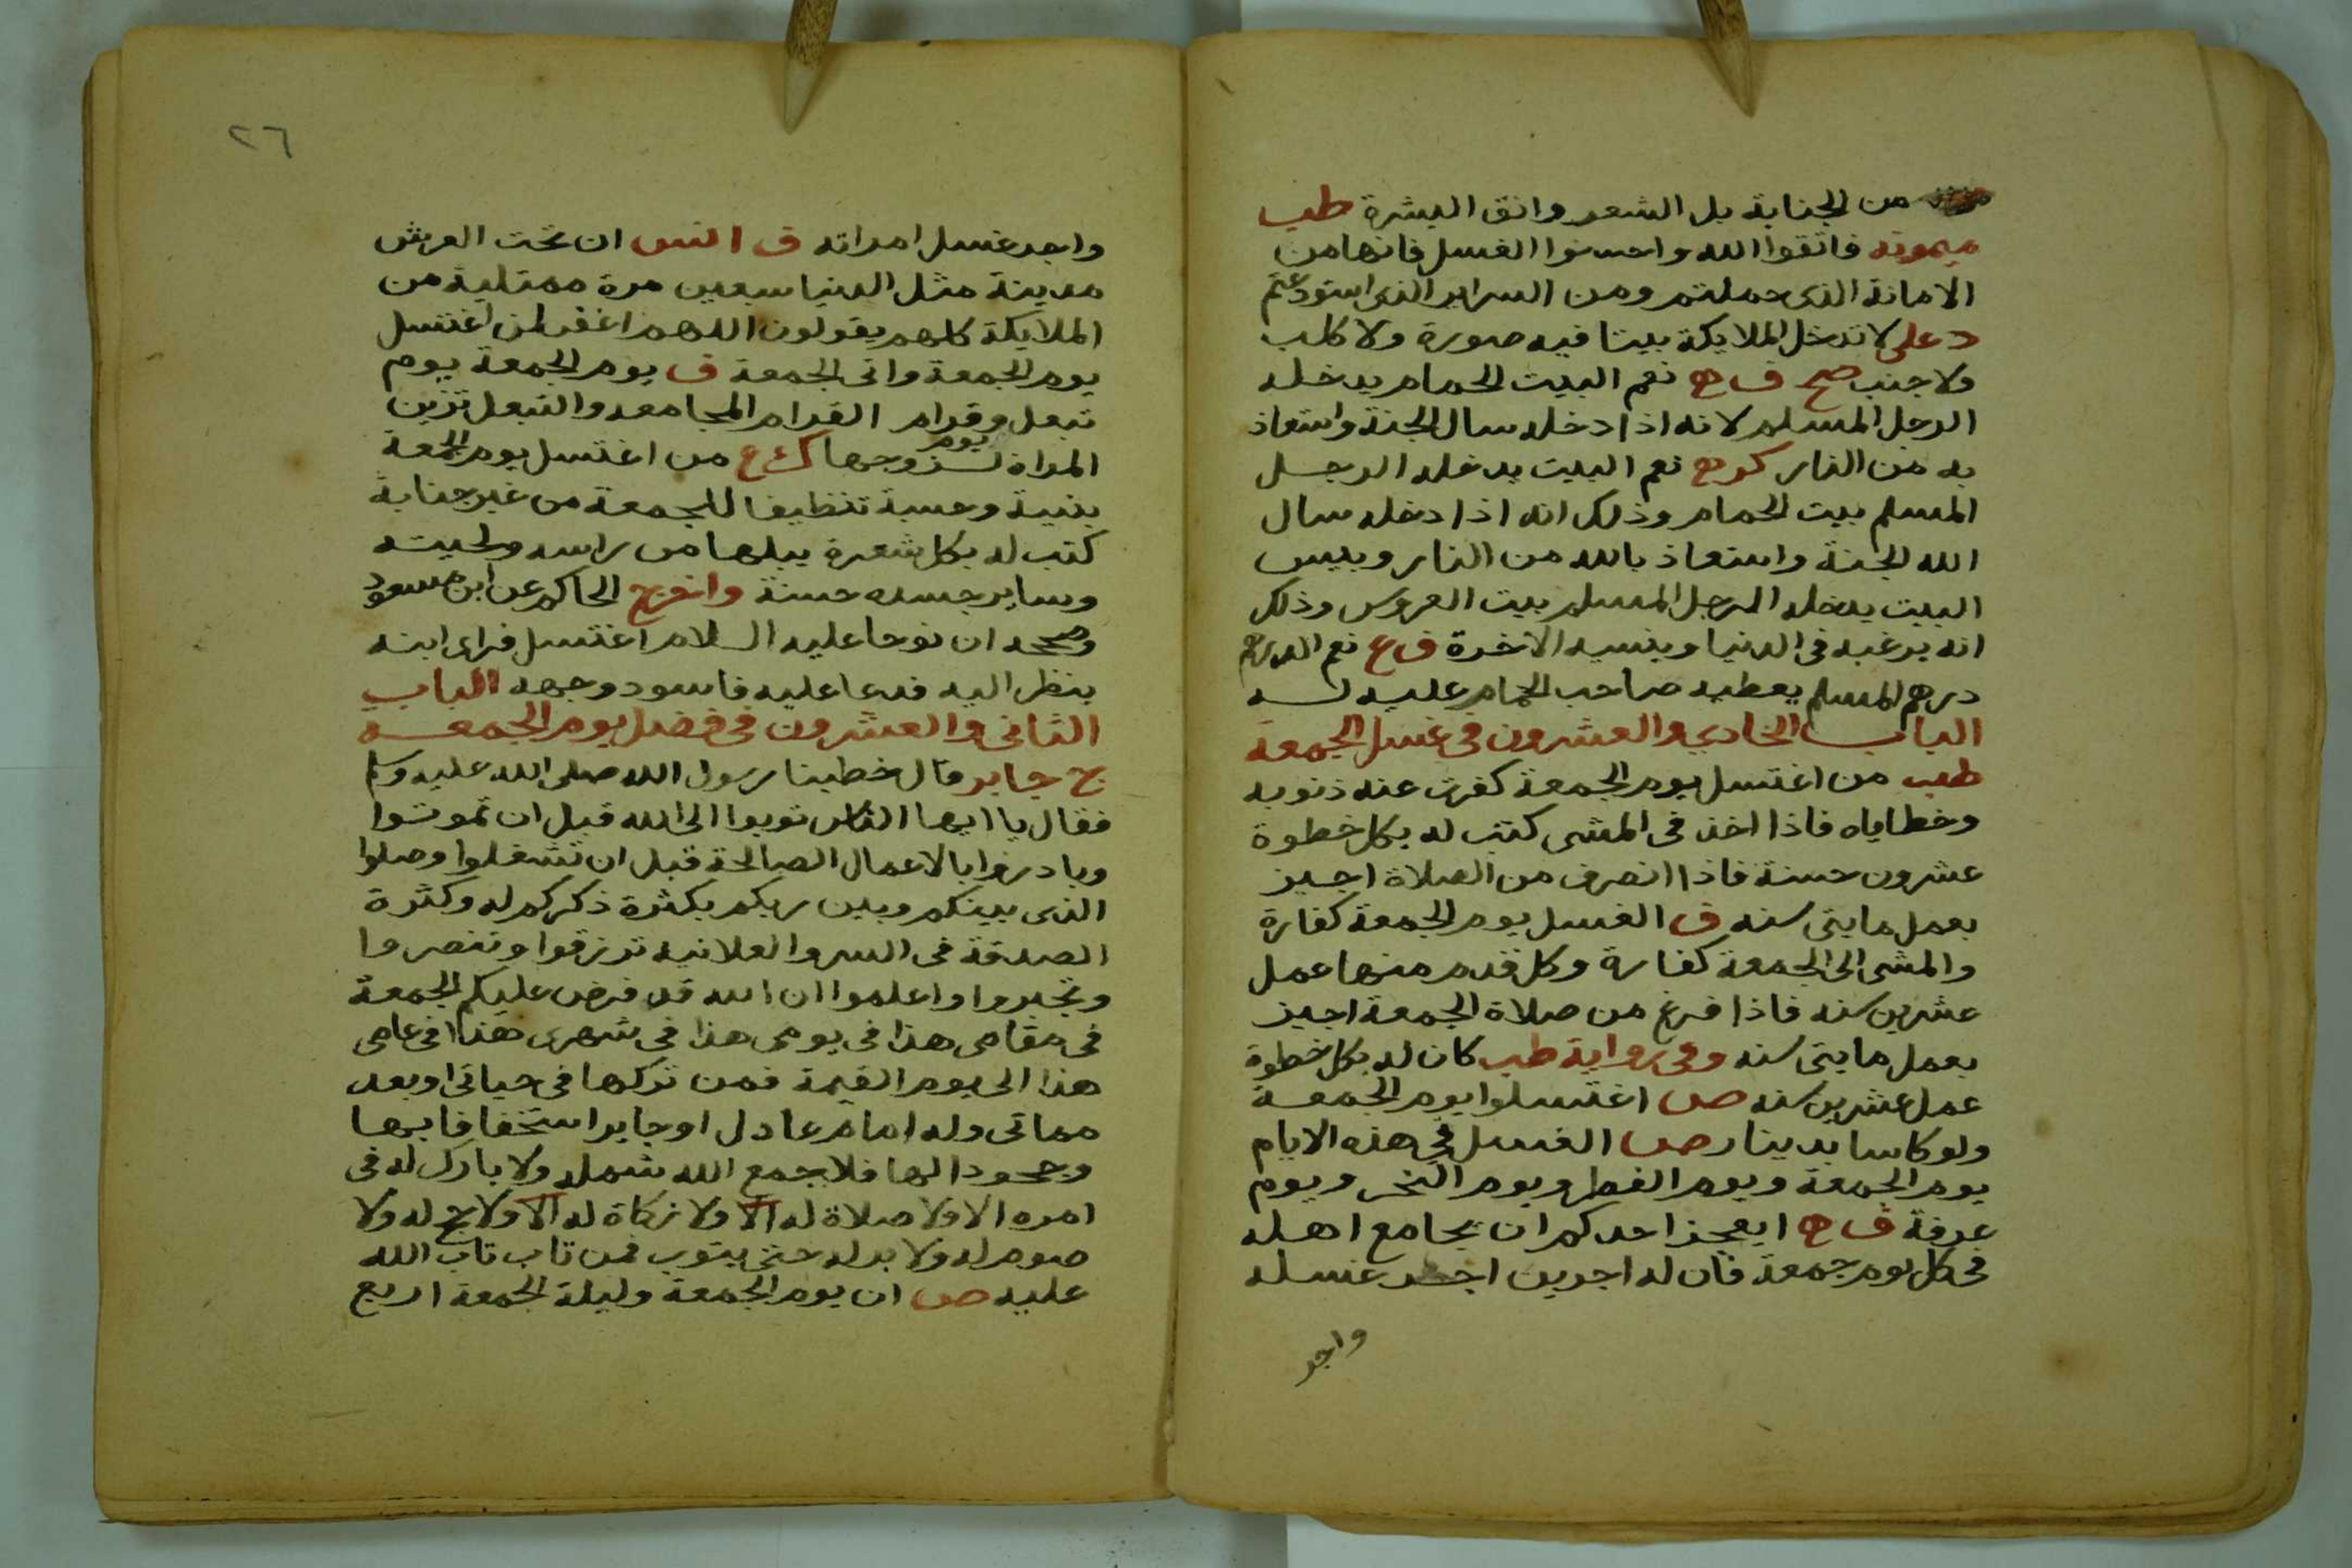 من الجنابة بل الشعر وانق البشرة طب
ميمونه فاتقوا الله واحسنوا الغسل فانها من
الامانة الذى حملتم ومن السراير الذى استودعتم
د على لا تدخل الملايكة بيتا فيه صورة ولا كلب
ولا جنب صح ف ه نعم البيت الحمام يدخله
الرجل المسلم لانه اذا دخله سال الجنة واستعاذ
به من النار كر ه نعم البيت يدخله الرجل
المسلم بيت الحمام وذلك انه اذا دخله سال
الله الجنة واستعاذ بالله من النار وبيس
البيت يدخله الرجل المسلم بيت العروس وذلك
انه يرغبه فى الدنيا وينسيه الاخرة ف ع نعم الدرهم
درهم المسلم يعطيه صاحب الحمام عليه لسه
الباب الحادي والعشرون في غسل الجمعة
طب من اغتسل يوم الجمعة كفرت عنه ذنوبه
وخطاياه فاذا اخذ فى المشى كتب له بكل خطوة
عشرون حسنة فاذا انصرف من الصلاة اجيز
بعمل مايتى سنه ف الغسل يوم الجمعة كفارة
والمشى الى الجمعة كفارة وكل قدم منها عمل
عشرين سنه فاذا فرغ من صلاة الجمعة اجيز
بعمل مايتى سنه وفى رواية طب كان له بكل خطوة
عمل عشرين سنه ص اغتسلوا يوم الجمعة
ولو كاسا بدينار ص الغسل في هذه الايام
يوم الجمعة ويوم الفطر ويوم النحر ويوم
عرفة ف ه ايعجز احدكم ان يجامع اهله
فى كل يوم جمعة فان له اجرين اجر غسله
واجر
٢٦
واجر غسل امراته ف انس ان تحت العرش
مدينة مثل الدنيا سبعين مرة ممتلية من
الملايكة كلهم يقولون اللهم اغفر لمن اغتسل
يوم الجمعة واتى الجمعة ف يوم الجمعة يوم
تبعل وقرام القرام المجامعه والتبعل تزين
يوم
المراة لزوجها ك ع من اغتسل يوم الجمعة
بنية وحسبة تنظيفا للجمعة من غير جنابة
كتب له بكل شعرة يبلها من راسه ولحيته
وساير جسده حسنة واخرج الحاكم عن ابن مسعود
وصححه ان نوحا عليه السلام اغتسل فراى ابنه
ينظر اليه فدعا عليه فاسود وجهه الباب
الثانى والعشرون فى فضل يوم الجمعة
ج جابر قال خطبنا رسول الله صلى الله عليه وسلم
فقال يا ايها الناس توبوا الى الله قبل ان تموتوا
وبادروا بالاعمال الصالحة قبل ان تشغلوا وصلوا
الذى بينكم وبين ربكم بكثرة ذكركم له وكثرة
الصدقة فى السر والعلانيه ترزقوا وتنصروا
وتجبروا واعلموا ان الله قد فرض عليكم الجمعة
فى مقامى هذا فى يومى هذا فى شهرى هذا فى عامى
هذا الى يوم القيمة فمن تركها فى حياتى او بعد
مماتى وله امام عادل او جاير استخفافا بها
وجحودا لها فلا جمع الله شمله ولا بارك له فى
امره الا ولا صلاة له الا ولا زكاة له الا ولا حج له ولا
صوم له ولا بر له حتى يتوب فمن تاب تاب الله
عليه ص ان يوم الجمعة وليلة الجمعة اربع